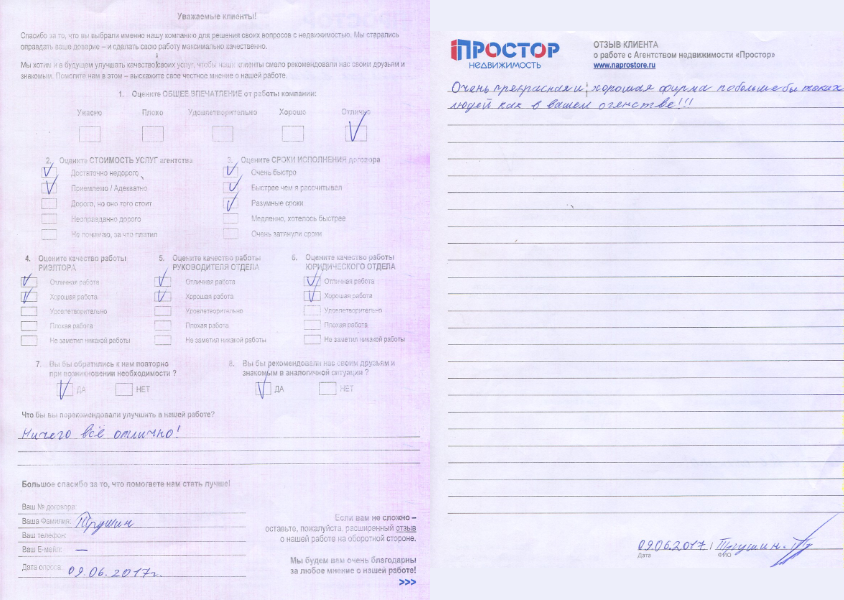 Уважаемые клиенты!
Спасибо за то, что вы выбрали именно нашу компанию для решения своих вопросов с недвижимостью. Мы старались
оправдать ваше доверие – и сделать свою работу максимально качественно.
Мы хотим и в будущем улучшать качество своих услуг, чтобы наши клиенты смело рекомендовали нас своим друзьям и
знакомым. Помогите нам в этом – выскажите свое честное мнение о нашей работе
1. Оцените ОБЩЕЕ ВПЕЧАТЛЕНИЕ от работы компании:
Ужасно Плохо Удовлетворительно Хорошо Отлично
2. Оцените СТОИМОСТЬ УСЛУГ агентства
Достаточно недорого
Приемлемо / Адекватно
Дорого, но оно того стоит
Неоправданно дорого
Не понимаю, за что платил
3. Оцените СРОКИ ИСПОЛНЕНИЯ договора
Очень быстро
Быстрее чем я рассчитывал
Разумные сроки
Медленно, хотелось быстрее
Очень затянули сроки
4. Оцените качество работы
РИЭЛТОРА
Отличная работа
Хорошая работа
Удовлетворительно
Плохая работа
Не заметил никакой работы
5. Оцените качество работы
РУКОВОДИТЕЛЯ ОТДЕЛА
Отличная работа
Хорошая работа
Удовлетворительно
Плохая работа
Не заметил никакой работы
6. Оцените качество работы
ЮРИДИЧЕСКОГО ОТДЕЛА
Отличная работа
Хорошая работа
Удовлетворительно
Плохая работа
Не заметил никакой работы
7. Вы бы обратились к нам повторно
при возникновении необходимости ?
ДА НЕТ
8. Вы бы рекомендовали нас своим друзьям и
знакомым в аналогичной ситуации ?
ДА НЕТ
Что бы вы порекомендовали улучшить в нашей работе?
Ничего всё отлично!
Большое спасибо за то, что помогаете нам стать лучше!
Ваш № договора:
Ваша Фамилия: Трушин
Ваш телефон:
Ваш E-майл: —
Дата опроса: 09.06.2017г.
Если вам не сложно –
оставьте, пожалуйста, расширенный отзыв
о нашей работе на оборотной стороне.
Мы будем вам очень благодарны
за любое мнение о нашей работе!
>>>
ПРОСТОР
НЕДВИЖИМОСТЬ
ОТЗЫВ КЛИЕНТА
о работе с Агентством недвижимости «Простор»
www.naprostore.ru
Очень прекрасная и хорошая фирма побольше бы таких
людей как в вашем агенстве!!!
09.06.2017 / Трушин.
Дата ФИО